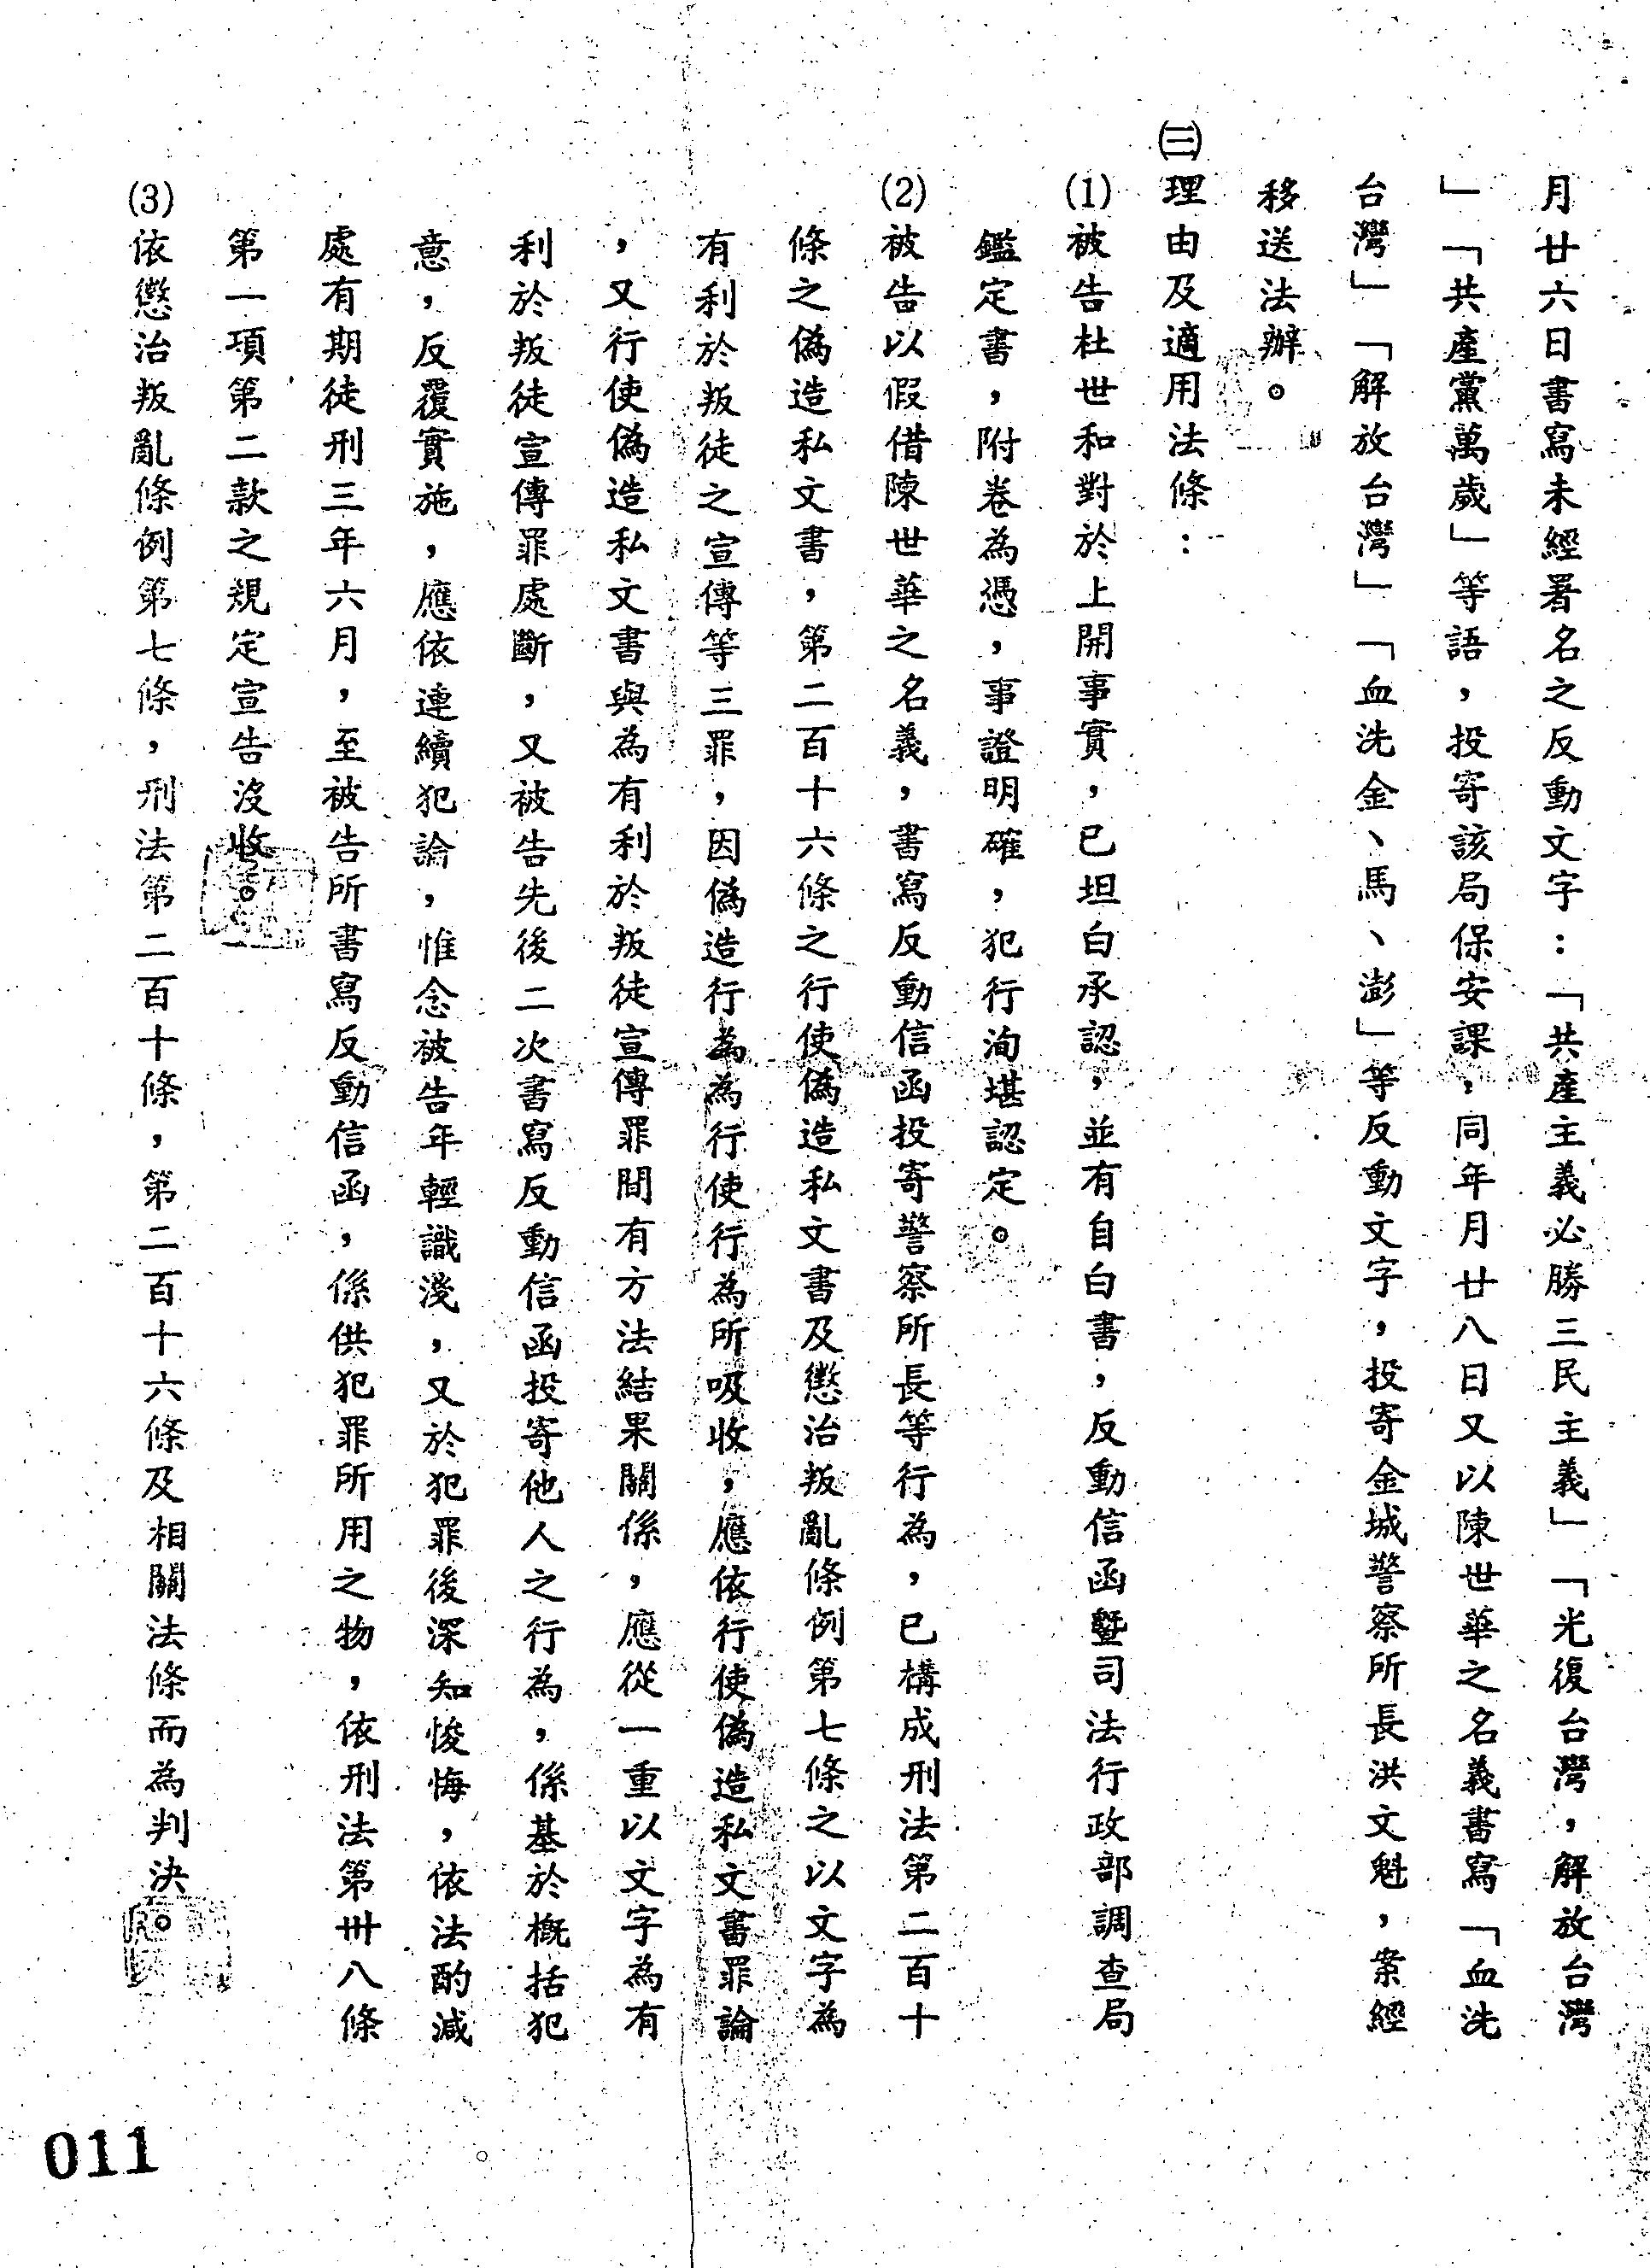 月廿六日書寫未經署名之反動文字：「共產主義必勝三民主義」「光復台灣，解放台灣
」「共產黨萬歲」等語，投寄該局保安課，同年月廿八日又以陳世華之名義書寫「血洗
台灣」「解放台灣」「血洗金、馬、澎」等反動文字，投寄金城警察所長洪文魁，案經
移送法辦。
㈢理由及適用法條：
(1)被告杜世和對於上開事實，已坦白承認，並有自白書，反動信函暨司法行政部調查局
鑑定書，附卷為憑，事證明確，犯行洵堪認定。
(2)被告以假借陳世華之名義，書寫反動信函投寄警察所長等行為，已構成刑法第二百十
條之偽造私文書，第二百十六條之行使偽造私文書及懲治叛亂條例第七條之以文字為
有利於叛徒之宣傳等三罪，因偽造行為為行使行為所吸收，應依行使偽造私文書罪論
，又行使偽造私文書與為有利於叛徒宣傳罪間有方法結果關係，應從一重以文字為有
利於叛徒宣傳罪處斷，又被告先後二次書寫反動信函投寄他人之行為，係基於概括犯
意，反覆實施，應依連續犯論，惟念被告年輕識淺，又於犯罪後深知悛悔，依法酌減
處有期徒刑三年六月，至被告所書寫反動信函，係供犯罪所用之物，依刑法第卅八條
第一項第二款之規定宣告沒收。
(3)依懲治叛亂條例第七條，刑法第二百十條，第二百十六條及相關法條而為判決。
011